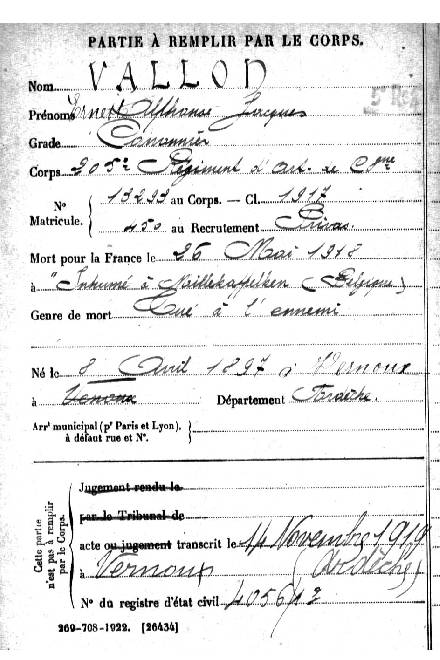 PARTIE À REMPLIR PAR LE CORPS.
Nom VALLON
Prénoms Ernest Alphonse Jacques
Grade Canonnier
Corps 205e Régiment d'Art. de Cgne
N° Matricule. 13293 au Corps. — Cl. 1917
450 au Recrutement Privas
Mort pour la France le 26 Mai 1918
à "Inhumé à (Belgique)
Genre de mort Tué à l'ennemi
Né le 8 Avril 1897 à Vernoux
à Vernoux Département Ardèche.
Arrt municipal (pr Paris et Lyon),
à défaut rue et N°.
Cette partie n'est pas à remplir par le Corps.
Jugement rendu le
par le Tribunal de
acte ou jugement transcrit le 14 Novembre 1919
à Vernoux (Ardèche)
N° du registre d'état civil
269-708-1922. [26434]